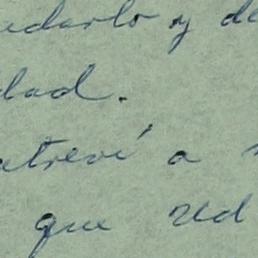 udarlo y de
dad.
atreví a
que Ud